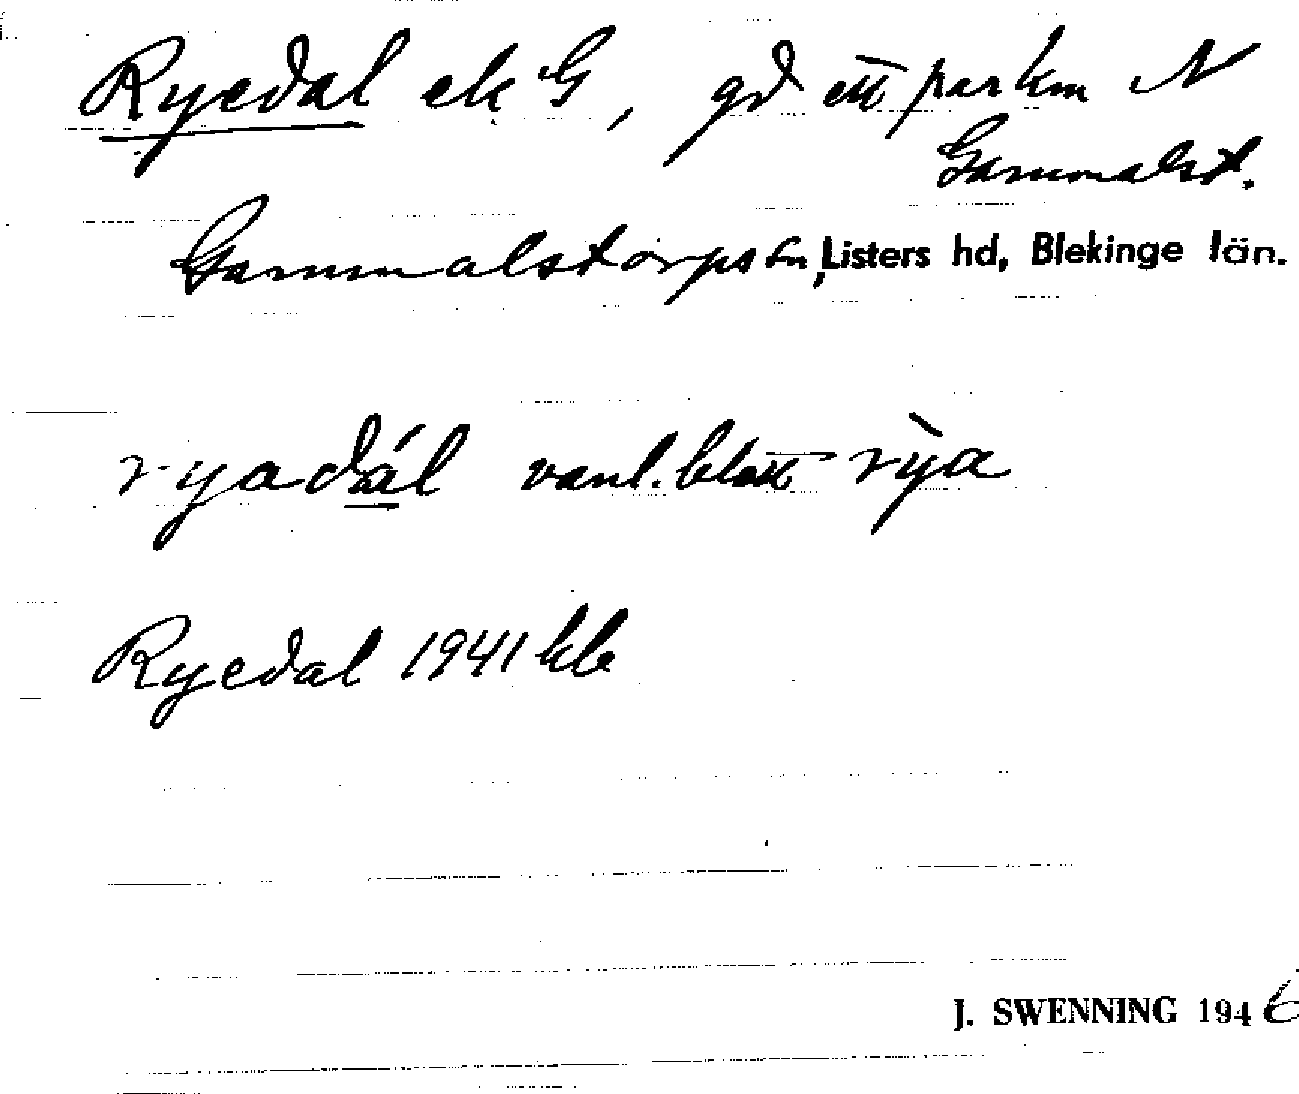 Ryedal ek G, gd ett par km N
Gammalst.
Gammalstorps sn, Listers hd, Blekinge län.
ryadál vanl. blott rỳa
Ryedal 1941 kb
J. SWENNING 1946